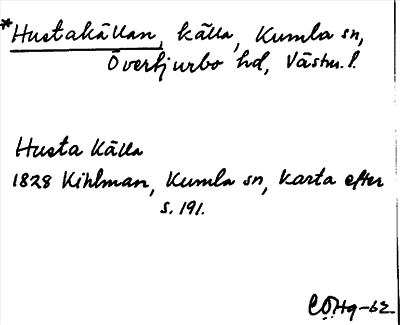 *Hustakällan, källa, Kumla sn,
Övertjurbo hd, Västm. l.
Husta Källa
1828 Kihlman, Kumla sn, Karta efter
s. 191.
CÖHg-62